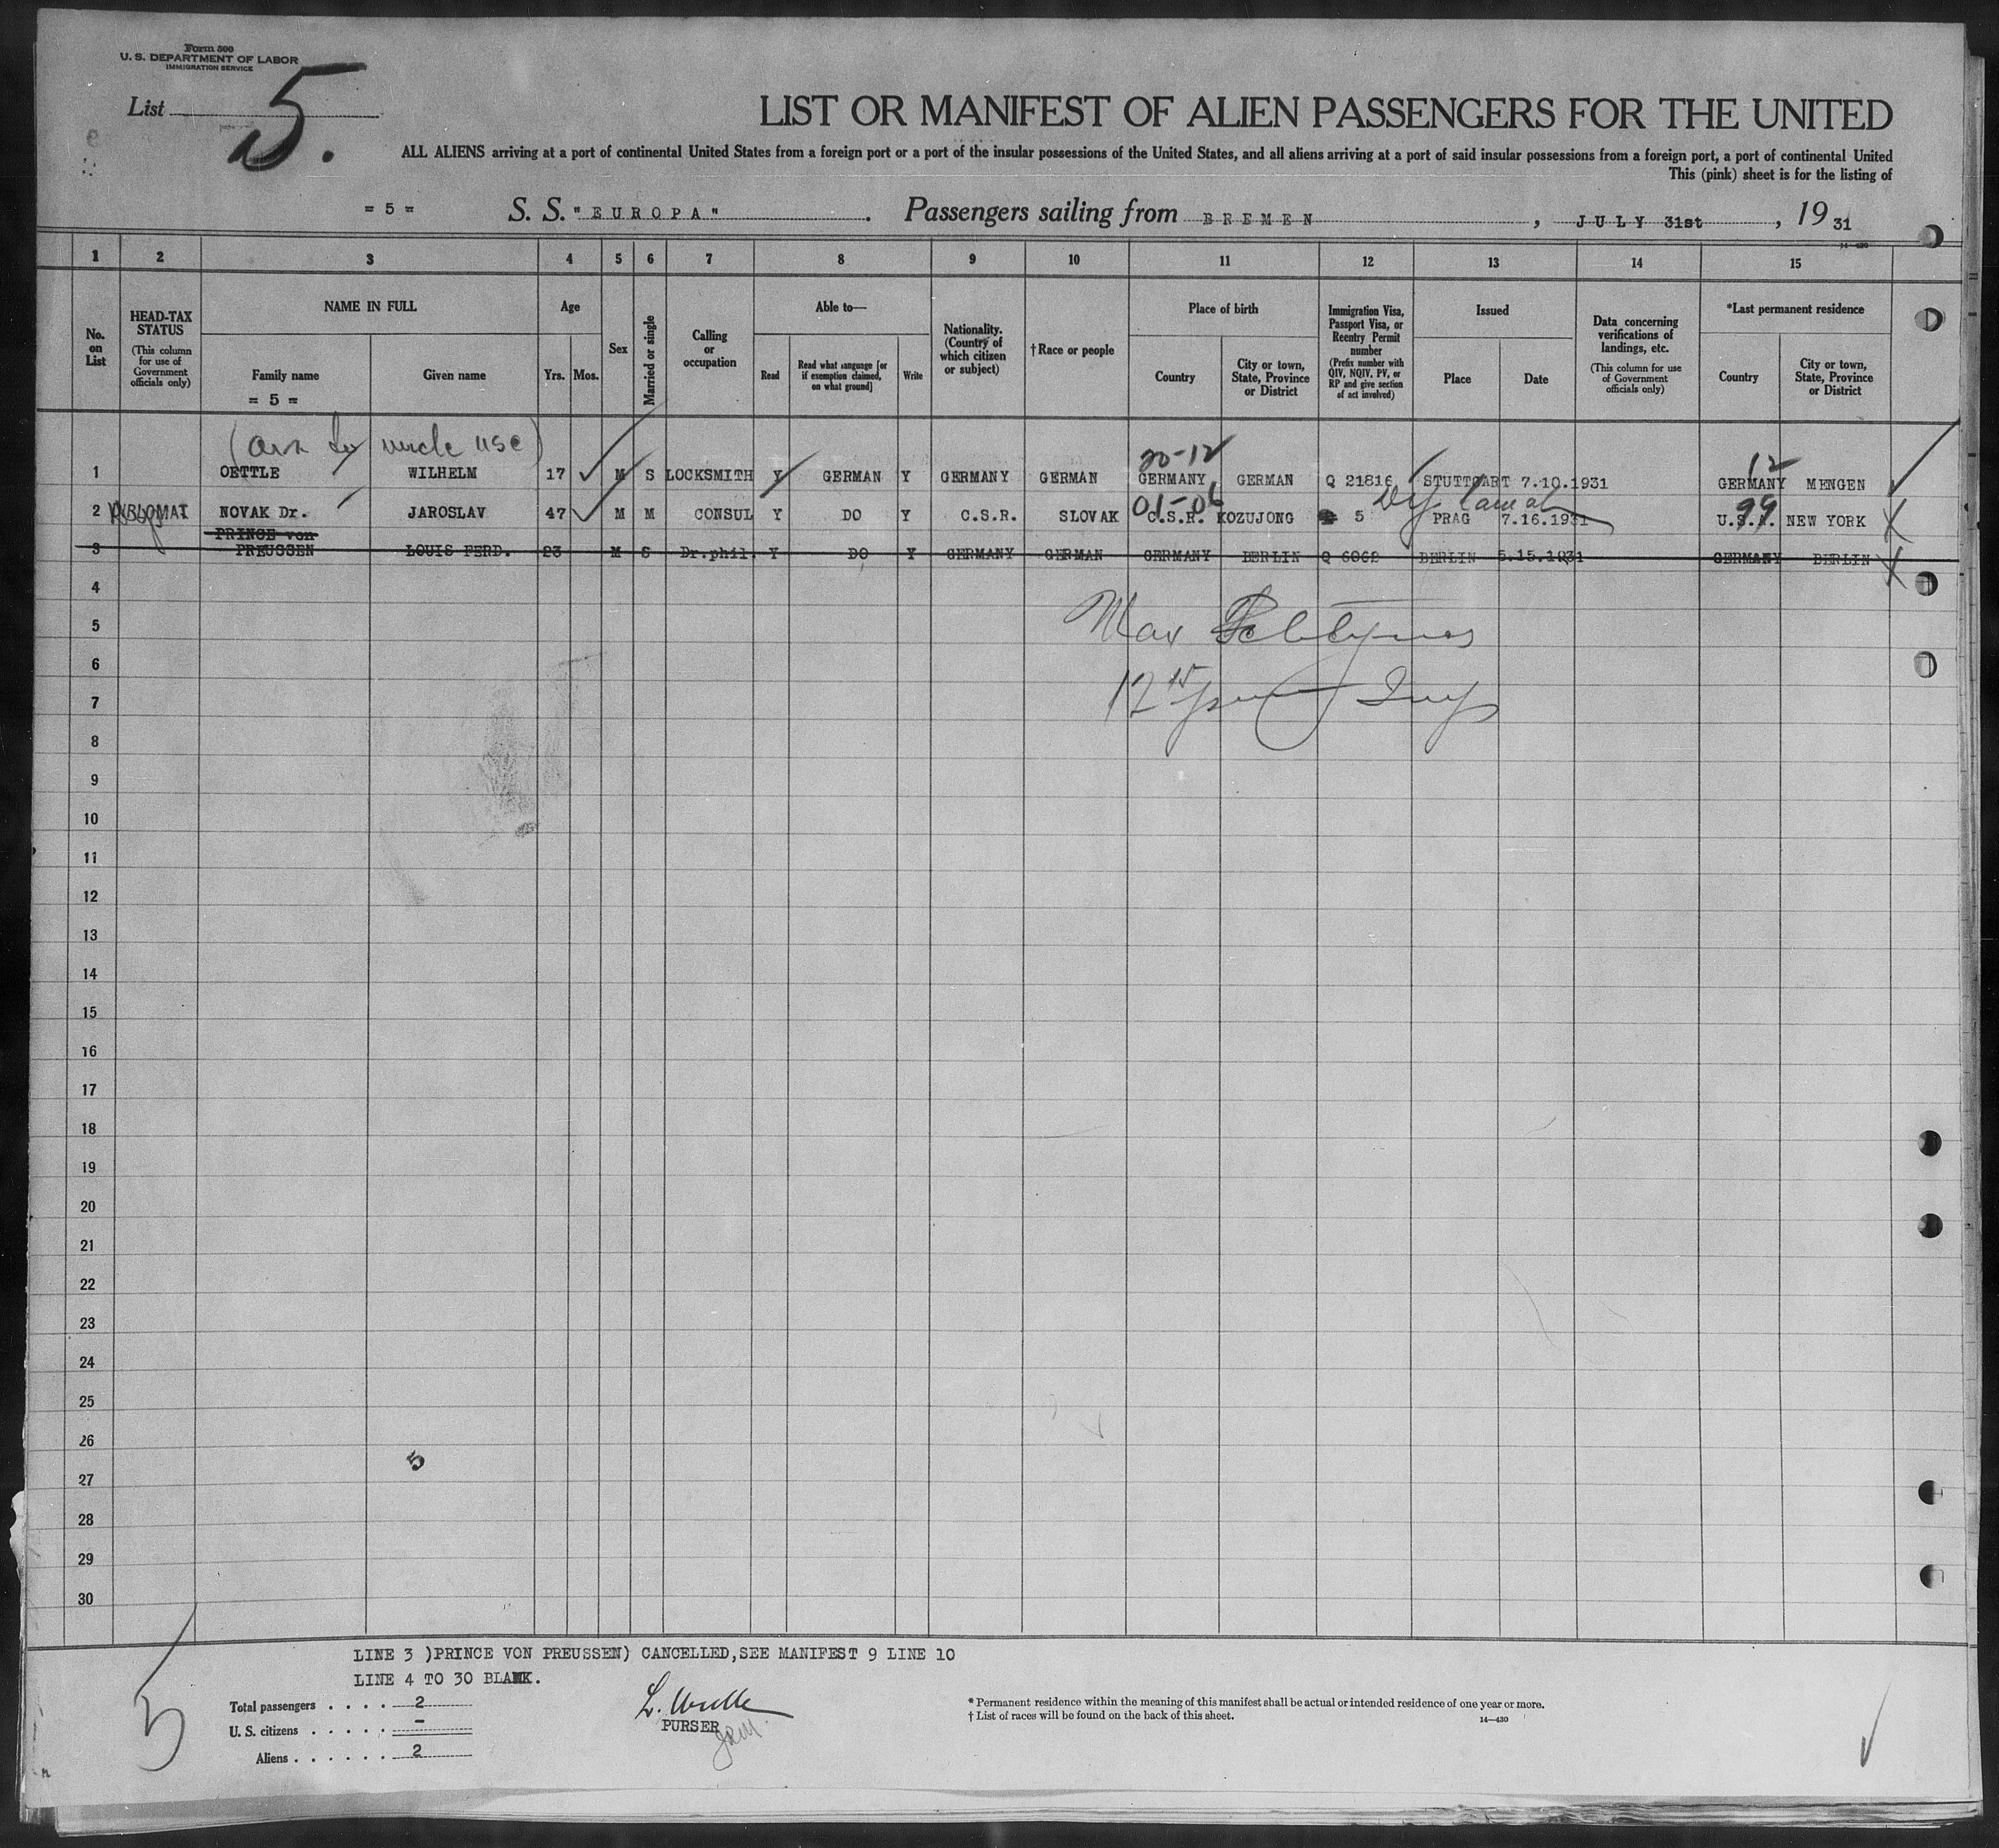 Form 500
U. S. DEPARTMENT OF LABOR
IMMIGRATION SERVICE
List 5.
LIST OR MANIFEST OF ALIEN PASSENGERS FOR THE UNITED
ALL ALIENS arriving at a port of continental United States from a foreign port or a port of the insular possessions of the United States, and all aliens arriving at a port of said insular possessions from a foreign port, a port of continental United
This (pink) sheet is for the listing of
= 5 = S. S. "EUROPA" . Passengers sailing from BREMEN , JULY 31st , 19 31
14—430
1 2 3 4 5 6 7 8 9 10 11 12 13 14 15
No. on List
HEAD-TAX STATUS (This column for use of Government officials only)
NAME IN FULL
Family name
= 5 =
Given name
Age
Yrs. Mos.
Sex
Married or single
Calling or occupation
Able to—
Read
Read what language [or if exemption claimed, on what ground]
Write
Nationality. (Country of which citizen or subject)
†Race or people
Place of birth
Country
City or town, State, Province or District
Immigration Visa, Passport Visa, or Reentry Permit number (Prefix number with QIV, NQIV, PV, or RP and give section of act involved)
Issued
Place
Date
Data concerning verifications of landings, etc. (This column for use of Government officials only)
*Last permanent residence
Country
City or town, State, Province or District
uncle
20-12 12
1 OETTLE WILHELM 17 M S LOCKSMITH Y GERMAN Y GERMANY GERMAN GERMANY GERMAN Q 21816 STUTTGART 7.10.1931 GERMANY MENGEN
01-06 Diplomat 99
2 DIPLOMAT NOVAK Dr. JAROSLAV 47 M M CONSUL Y DO Y C.S.R. SLOVAK C.S.R. KOZUJONG 5 PRAG 7.16.1931 U.S.A. NEW YORK
PRINCE von
3 PREUSSEN LOUIS FERD. 23 M S Dr.phil. Y DO Y GERMANY GERMAN GERMANY BERLIN Q 6062 BERLIN 5.15.1931 GERMANY BERLIN
4
5 Max
6
7 12
8
9
10
11
12
13
14
15
16
17
18
19
20
21
22
23
24
25
26
5
27
28
29
30
LINE 3 )PRINCE VON PREUSSEN) CANCELLED,SEE MANIFEST 9 LINE 10
LINE 4 TO 30 BLANK.
5
Total passengers . . . . 2
U. S. citizens . . . . . –
Aliens . . . . . . 2
PURSER
* Permanent residence within the meaning of this manifest shall be actual or intended residence of one year or more.
† List of races will be found on the back of this sheet.
14—430